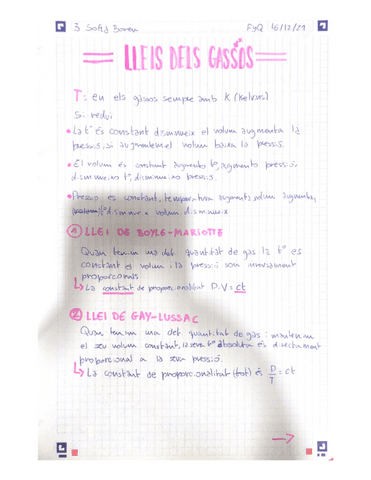 3 Sofia Boneu FyQ 16/12/21
LLEIS DELS GASSOS
T: en els gasos sempre amb K (Kelvins)
Si redui
• La tº és constant disminueix el volum augmenta la
pressió, si augmentem el volum baixa la pressió.
• El volum és constant augmenta tº, augmenta pressió si
disminueix tº, disminueix pressió.
• Pressió és constant, temperatura augmenta, volum augmenta,
tº disminueix volum disminueix
1 LLEI DE BOYLE-MARIOTTE
Quan tenim una det. quantitat de gas la tº es
constant el volum i la pressió son inversament
proporcionals
La constant de proporcionalitat P.V = ct
2 LLEI DE GAY-LUSSAC
Quan tenim una det. quantitat de gas i mantenim
el seu volum constant, la seva tº absoluta és directament
proporcional a la seva pressió.
La constant de proporcionalitat (tot) és P/T = ct